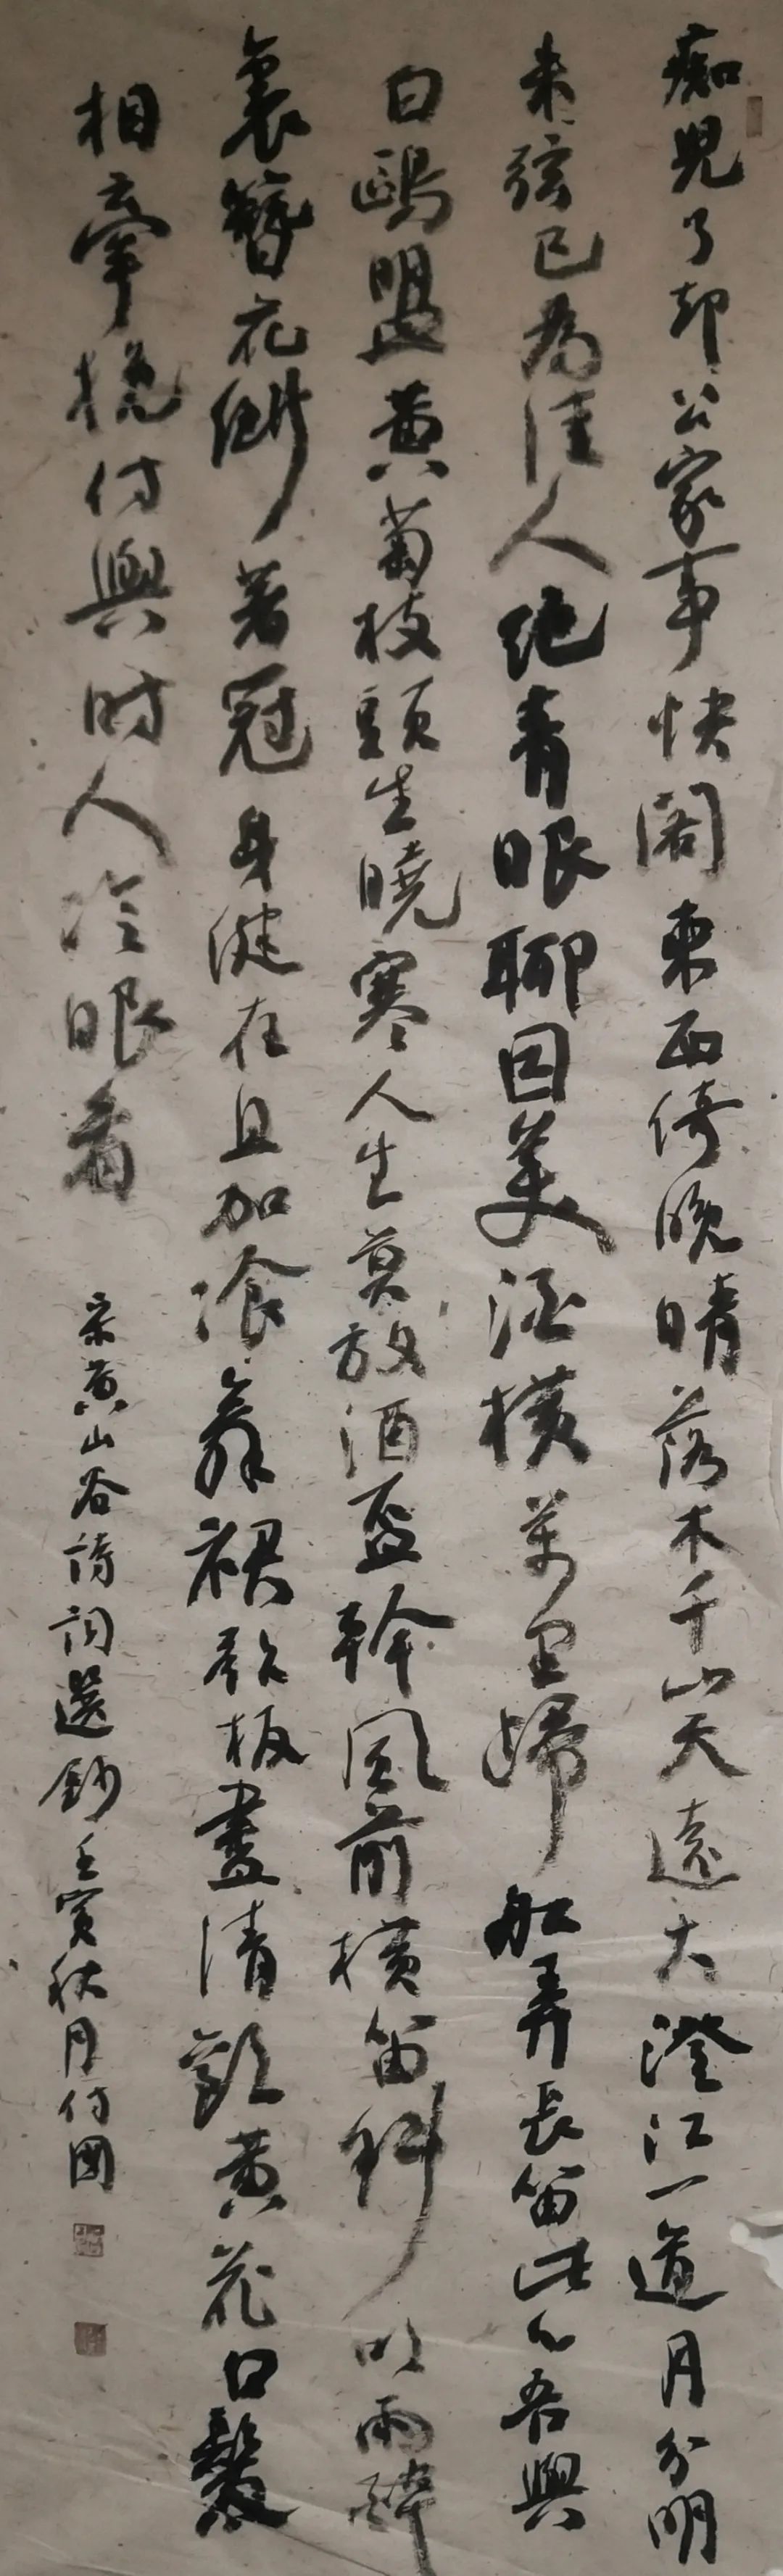 痴児了却公家事快阁東西倚晚晴落木千山天遠大澄江一道月分明
朱弦已為佳人绝青眼聊因美酒横萬里歸船弄長笛此心吾與
白鷗盟黄菊枝頭生曉寒人生莫放酒盃幹風前横笛斜吹雨醉
裏簪花倒著冠身健在且加飡舞裙歌板盡清歡黄花白髮
相牽挽付與時人冷眼看
采黄山谷詩詞選鈔壬寅秋月付國